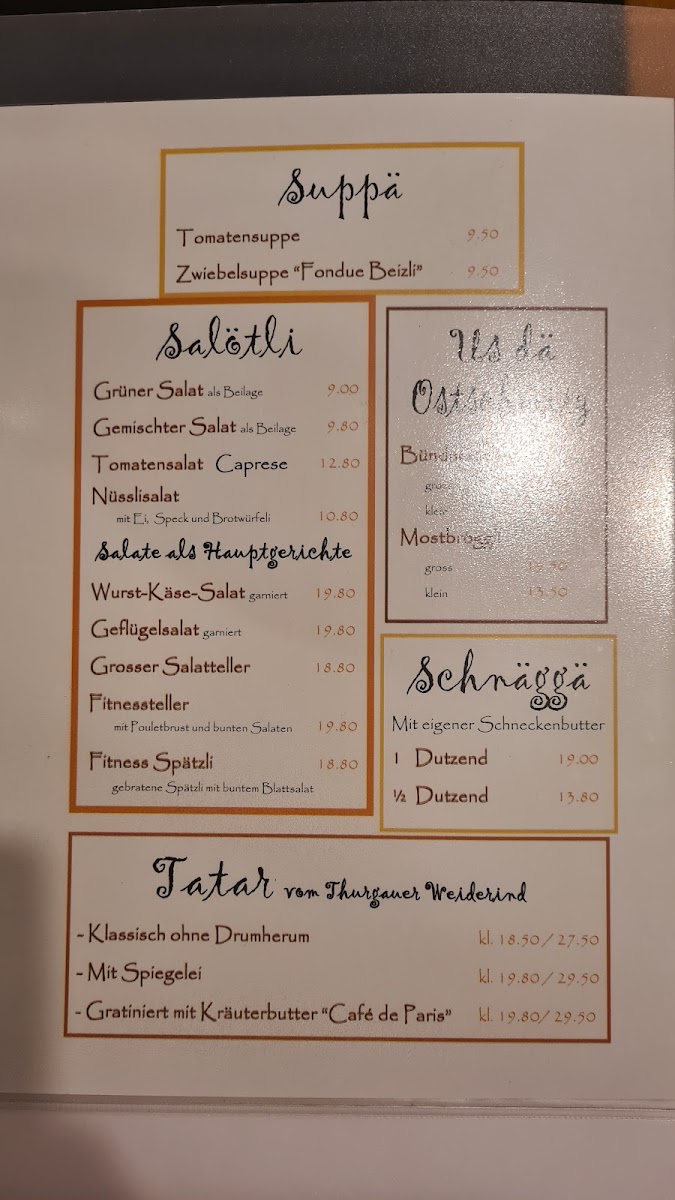 Suppä
Tomatensuppe 9.50
Zwiebelsuppe “Fondue Beizli” 9.50
Salötli
Grüner Salat als Beilage 9.00
Gemischter Salat als Beilage 9.80
Tomatensalat Caprese 12.80
Nüsslisalat
mit Ei, Speck und Brotwürfeli 10.80
Salate als Hauptgerichte
Wurst-Käse-Salat garniert 19.80
Geflügelsalat garniert 19.80
Grosser Salatteller 18.80
Fitnessteller
mit Pouletbrust und bunten Salaten 19.80
Fitness Spätzli 18.80
gebratene Spätzli mit buntem Blattsalat
Us dä
gross
klein
gross
klein 13.50
Schnäggä
Mit eigener Schneckenbutter
1 Dutzend 19.00
½ Dutzend 13.80
Tatar vom Thurgauer Weiderind
- Klassisch ohne Drumherum kl. 18.50 / 27.50
- Mit Spiegelei kl. 19.80 / 29.50
- Gratiniert mit Kräuterbutter “Café de Paris” kl. 19.80/ 29.50